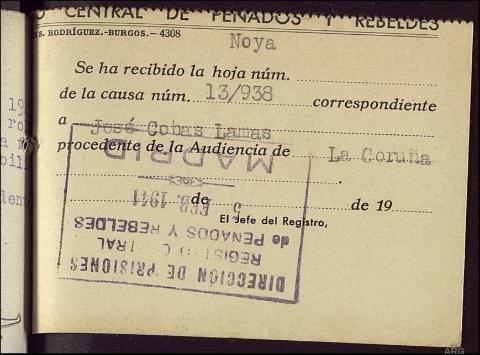 O CENTRAL DE PENADOS Y REBELDES
S. RODRÍGUEZ.-BURGOS.-4308
Noya
Se ha recibido la hoja núm.
de la causa núm. 13/938 correspondiente
a José Cobas Lamas
procedente de la Audiencia de La Coruña
de de 19
El Jefe del Registro,
DIRECCIÓN DE PRISIONES
REGISTRO CENTRAL
de PENADOS Y REBELDES
5 FEB. 1941
MADRID
19
ro
bil
ARG